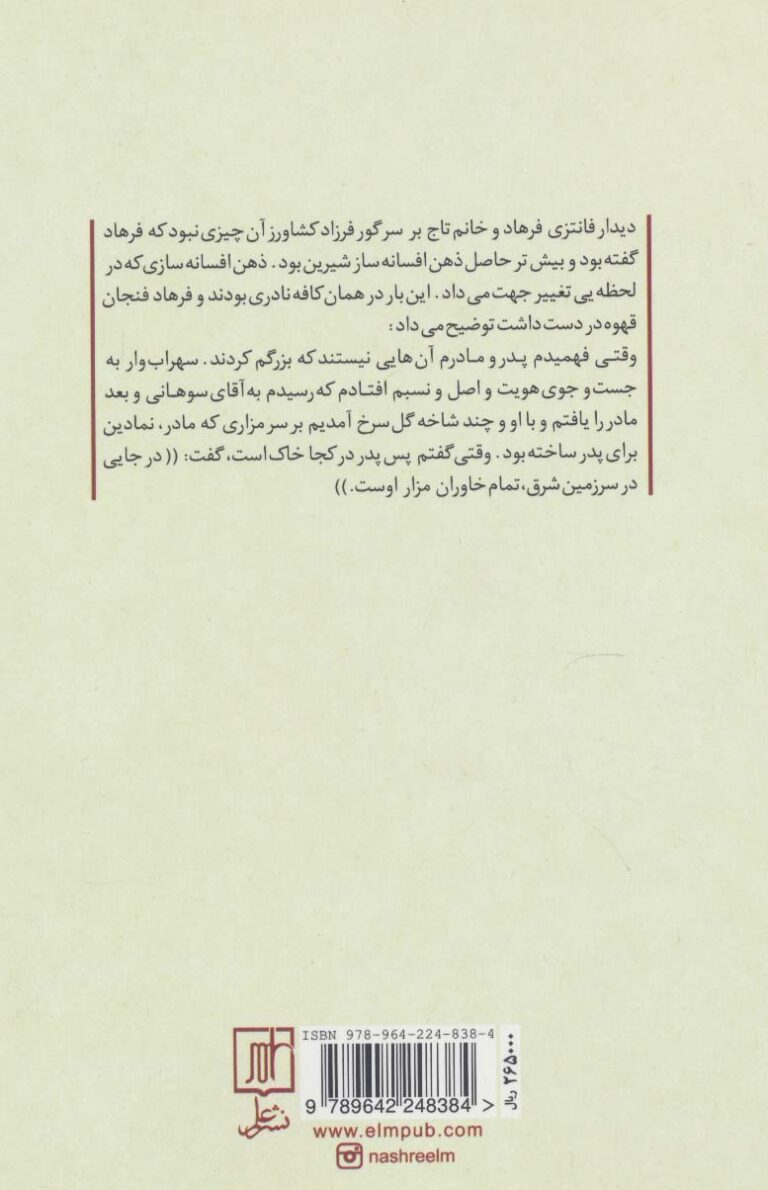 دیدار فانتزی فرهاد و خانم تاج بر سر گور فرزاد کشاورز آن چیزی نبود که فرهاد
گفته بود و بیش تر حاصل ذهن افسانه ساز شیرین بود. ذهن افسانه سازی که در
لحظه یی تغییر جهت می داد. این بار در همان کافه نادری بودند و فرهاد فنجان
قهوه در دست داشت توضیح می داد:
وقتی فهمیدم پدر و مادرم آن هایی نیستند که بزرگم کردند. سهراب وار به
جست و جوی هویت و اصل و نسبم افتادم که رسیدم به آقای سوهانی و بعد
مادر را یافتم و با او و چند شاخه گل سرخ آمدیم بر سر مزاری که مادر، نمادین
برای پدر ساخته بود. وقتی گفتم پس پدر در کجا خاک است، گفت: (( در جایی
در سرزمین شرق، تمام خاوران مزار اوست.))
ISBN 978-964-224-838-4
9 789642 248384 >
۲۶۵۰۰۰ ریال
علم
نشر علم
www.elmpub.com
nashreelm